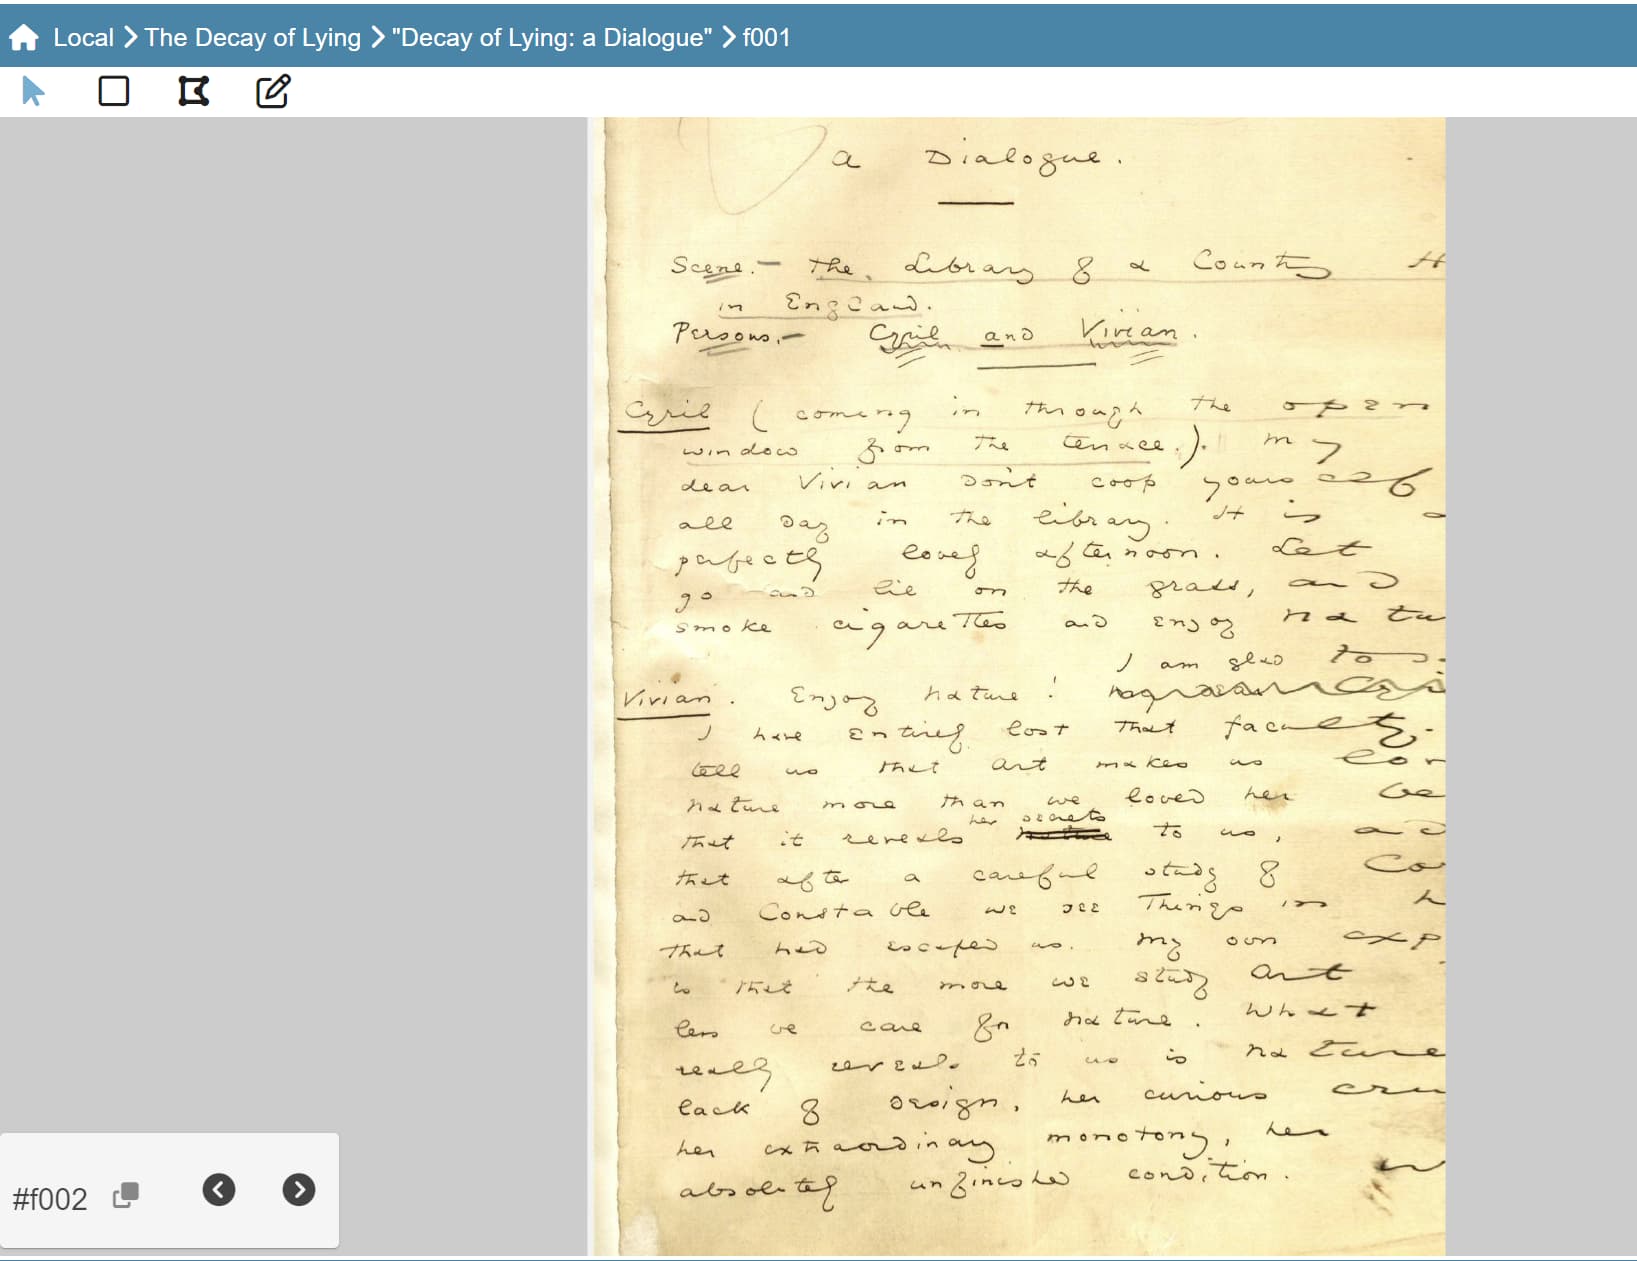 Local > The Decay of Lying > "Decay of Lying: a Dialogue" > f001
a Dialogue.
Scene.- The Library of a Country H
in England.
Persons.- Cyril and Vivian.
Cyril (coming in through the open
window from the terrace.). My
dear Vivian don't coop yourself
all day in the library. It is a
perfectly lovely afternoon. Let
go and lie on the grass, and
smoke cigarettes and enjoy natu
I am glad to
Vivian. Enjoy nature!
I have entirely lost that faculty.
tell us that art makes us lov
nature more than we loved her be
her secrets
that it reveals nature to us, and
that after a careful study of Co
and Constable we see things in h
that had escaped us. My own exp
is that the more we study art
less we care for nature. What
really reveals to us is nature
lack of design, her curious cru
her extraordinary monotony, her
absolutely unfinished condition.
#f002